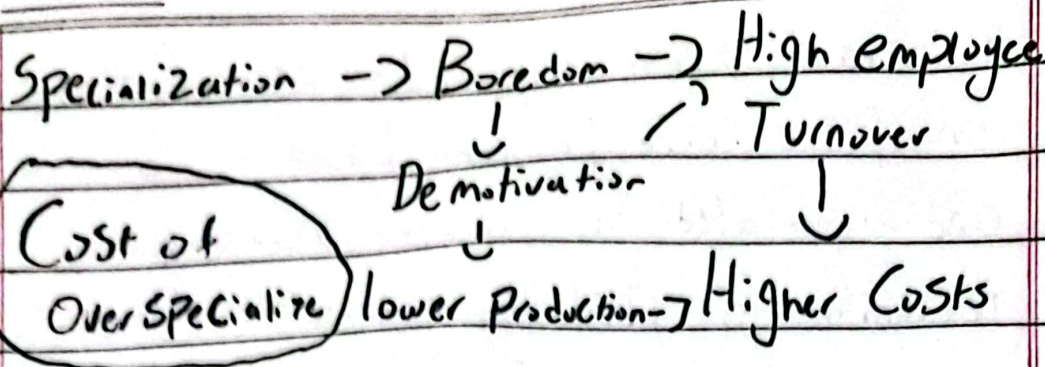 Specialization -> Boredom -> High employee
Turnover
Demotivation
Cost of
Overspecialize lower Production-> Higher Costs